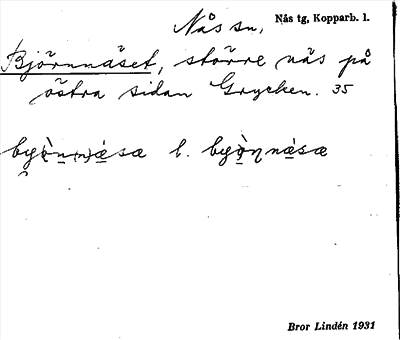 Nås sn, Nås tg, Kopparb. l.
Björnnäset, större näs på
östra sidan Grycken. 35
l.
Bror Lindén 1931